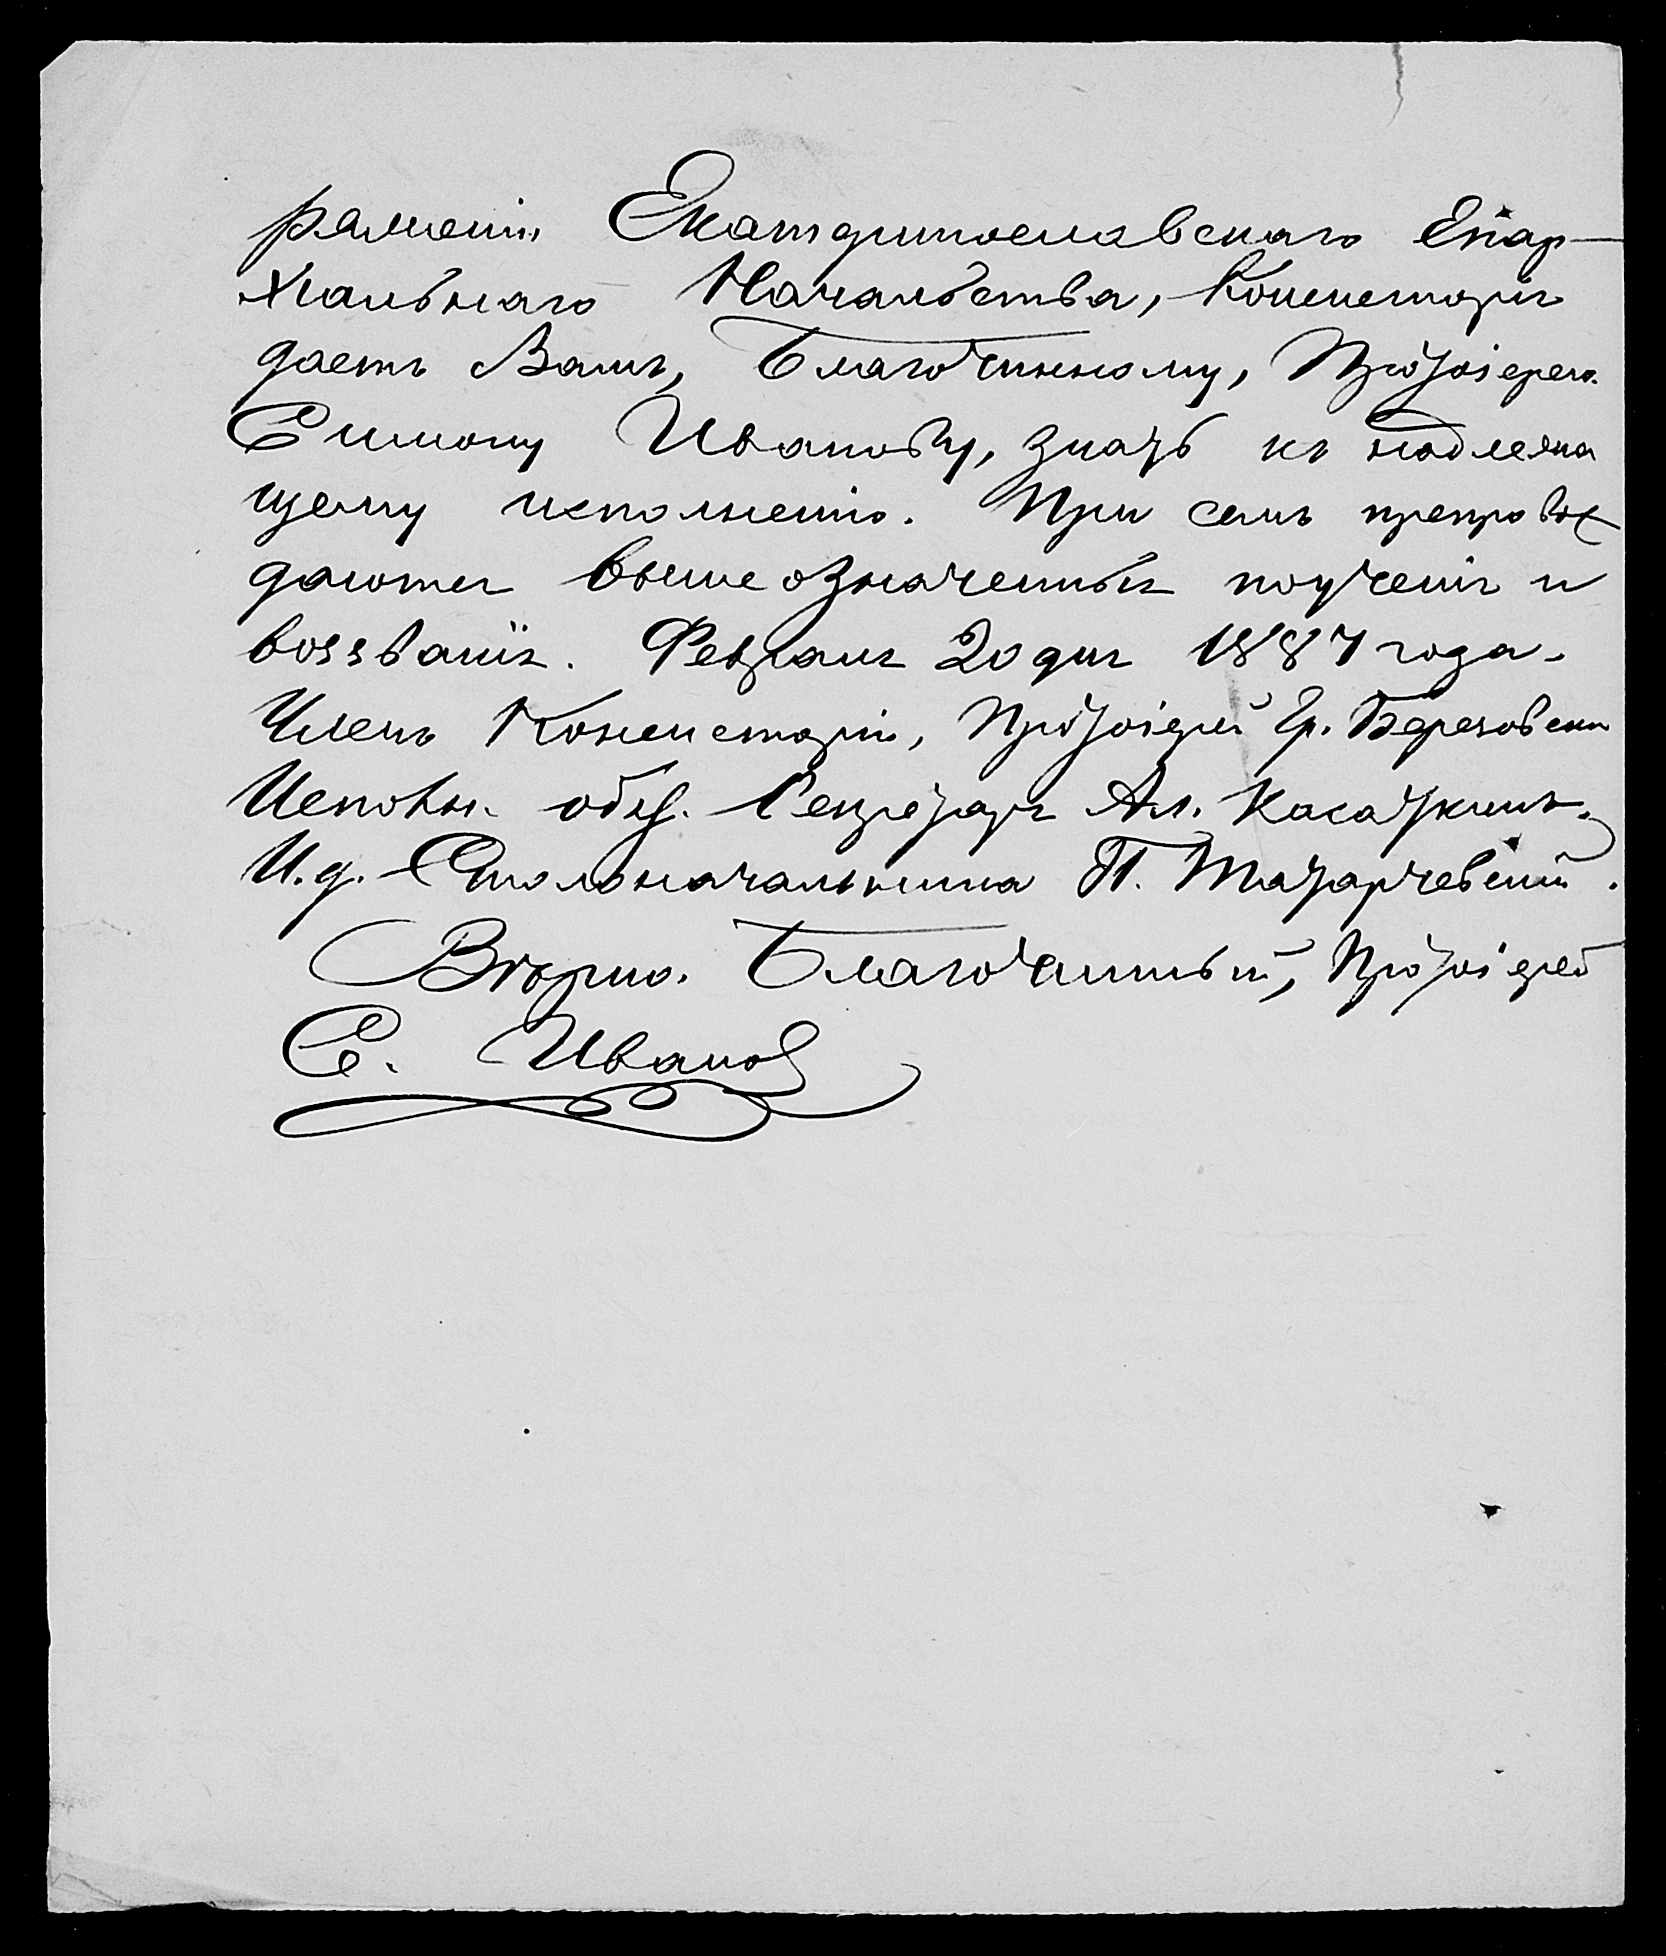 рѣшенію Екатеринославскаго Епар-
хіальнаго Начальства, Консисторія
даетъ Вамъ, Благочинному, Протоіерею
Симону Иванову, знать къ надлежа
щему исполненію. При семъ препровож
даются вышеозначенныя поученія и
воззванія. Февраля 20 дня 1887 года.
Членъ Консисторіи, Протоіерей Гр. Березовскій
Исповн. обяз. Секретаря Ал. Касаткинъ.
И. д. Столоначальника П. Татарчевскій.
Вѣрно. Благочинный, Протоіерей
С. Иванов